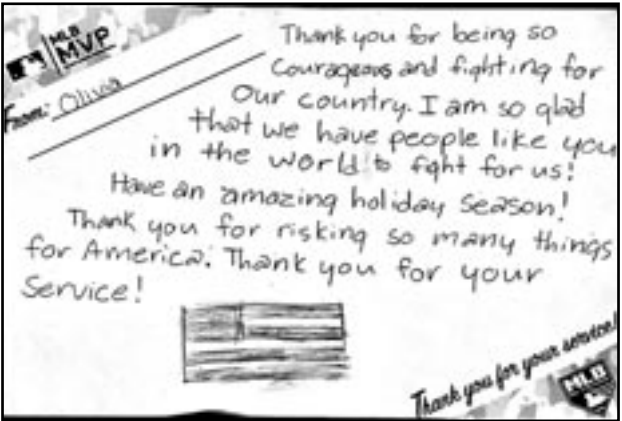 MLB
MVP
From: Olivia
Thank you for being so
courageous and fighting for
our country. I am so glad
that we have people like you
in the world to fight for us!
Have an amazing holiday season!
Thank you for risking so many things
for America. Thank you for your
Service!
Thank you for your service!
MLB